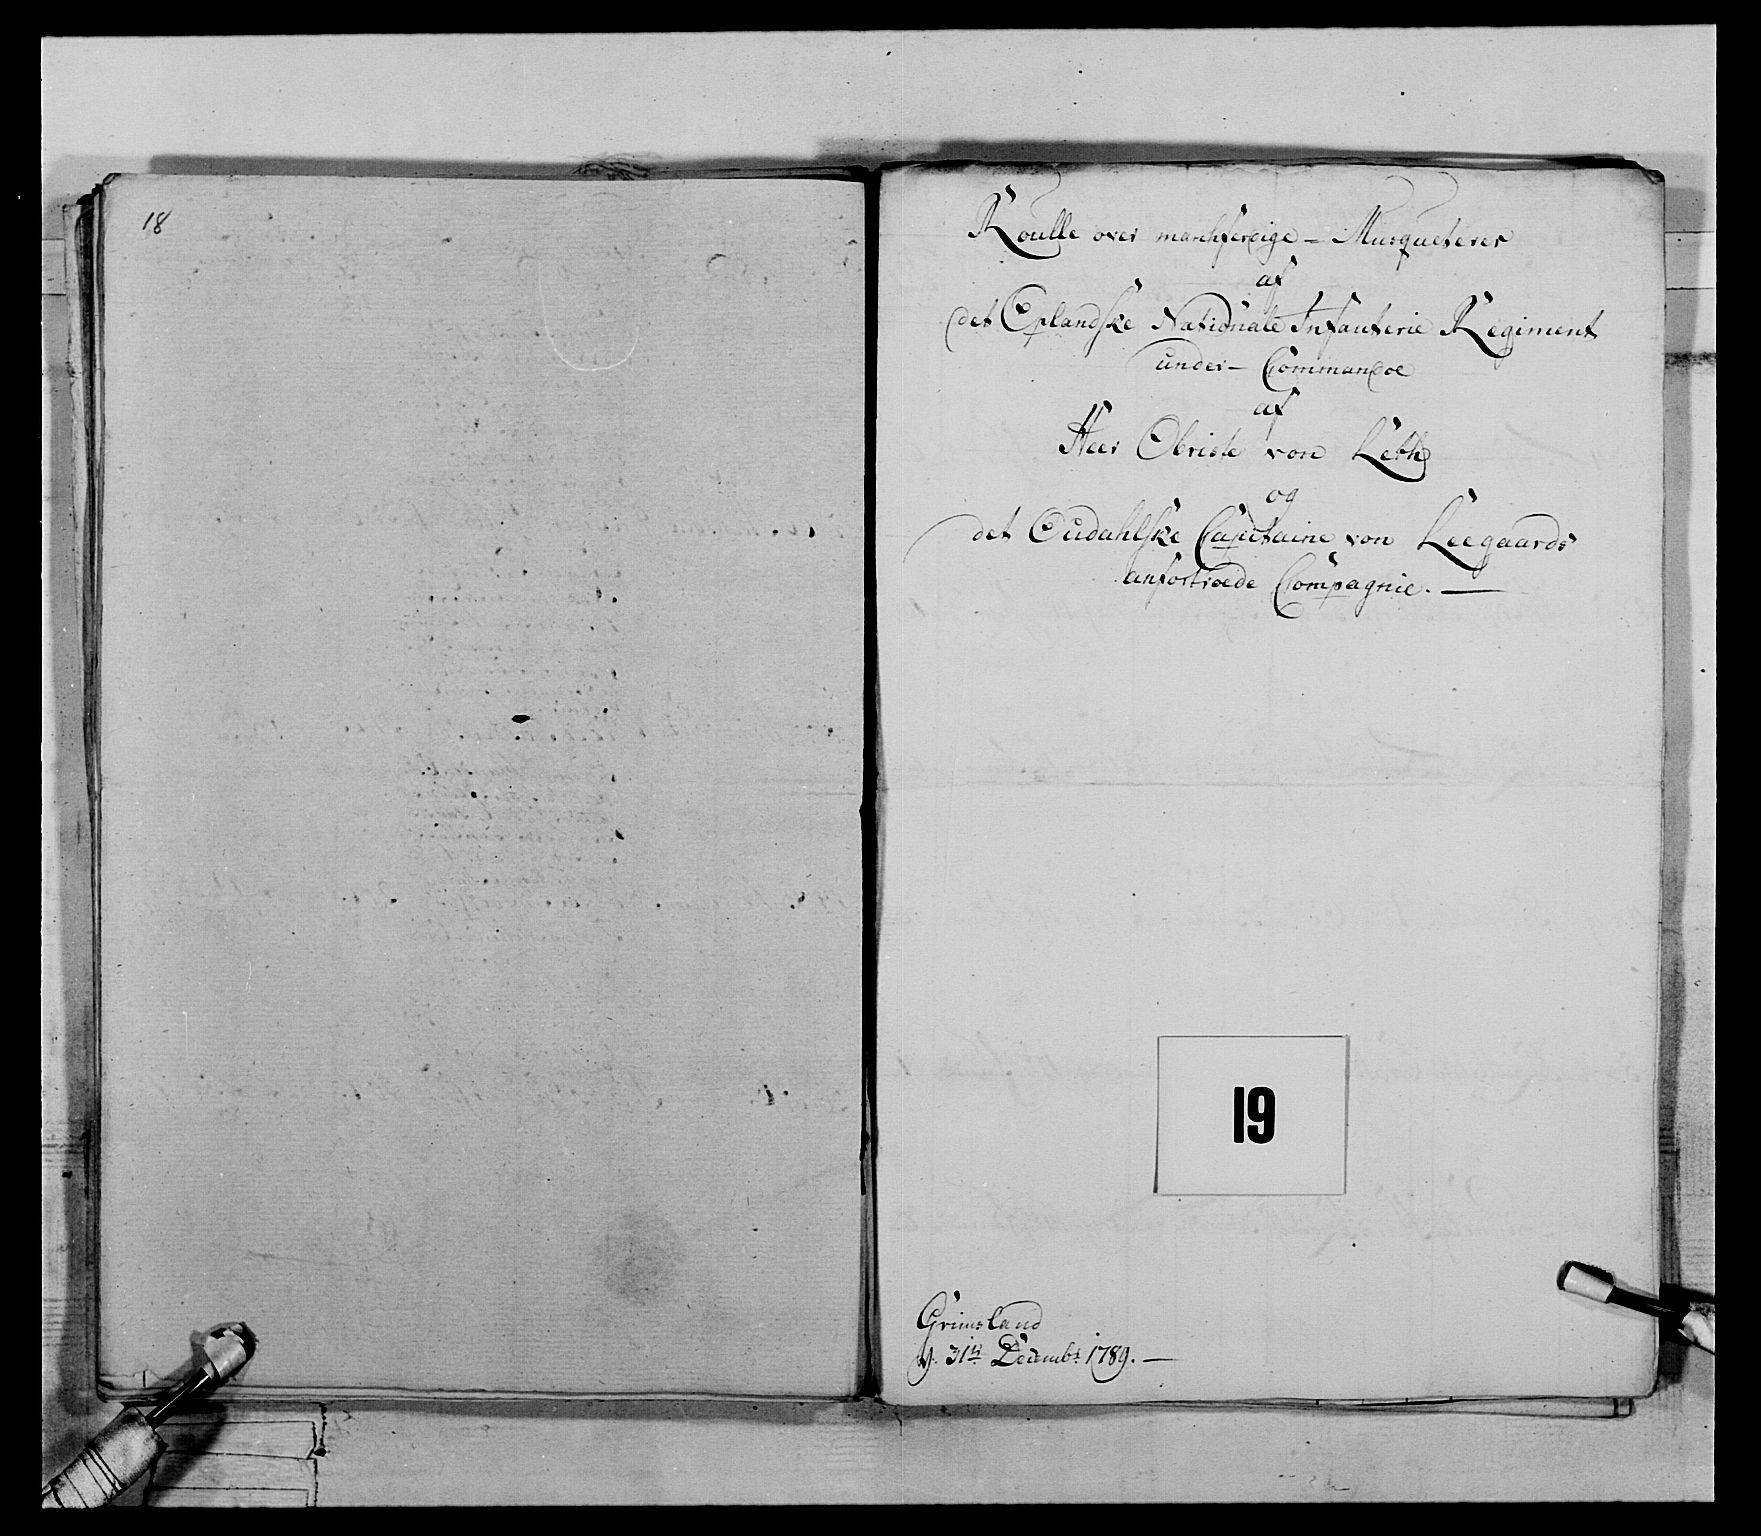 18
Roulle over marchferdige - Musqueterer
af
det Oplandske Nationale Infanterie Regiment
under - Commando
af
Herr Obriste von Leth
og
det Oudahlske Capitaine von Leegaards
anfortroede Compagnie. —
19
Grimsland
d. 31te Decembr 1789. —